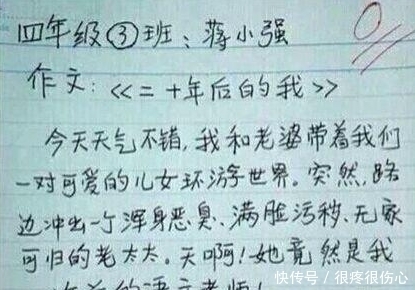 四年级③班：蒋小强
0
作文：<<二十年后的我>>
今天天气不错，我和老婆带着我们
一对可爱的儿女环游世界。突然，路
边冲出一个浑身恶臭、满脸污秽、无家
可归的老太太。天啊！她竟然是我
的语文老师！
快传号 / 很疼很伤心